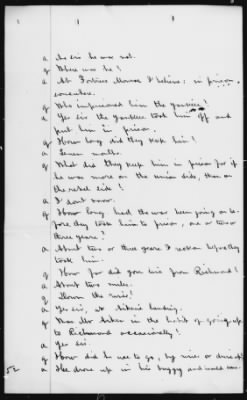 a No sir he was not.
q Where was he?
a At Fortress Monroe I believe: in prison
somewhere.
q Who imprisoned him the yankees?
a Yes sir the yankees took him off and
put him in prison.
q How long did they keep him?
a Seven months.
q What did they keep him in prison for if
he was more on the union side, than on
the rebel side?
a I don't know.
q How long had the war been going on be-
fore they took him to prison, one or two or
three years?
a About two or three years I reckon before they
took him.
q How far did you live from Richmond?
a About two miles.
q Down the river?
a Yes sir, at landing.
q Was Mr in the habit of going up
to Richmond occasionally?
a Yes sir.
q How did he use to go, by river or drive?
a He drove up in his buggy and would
52